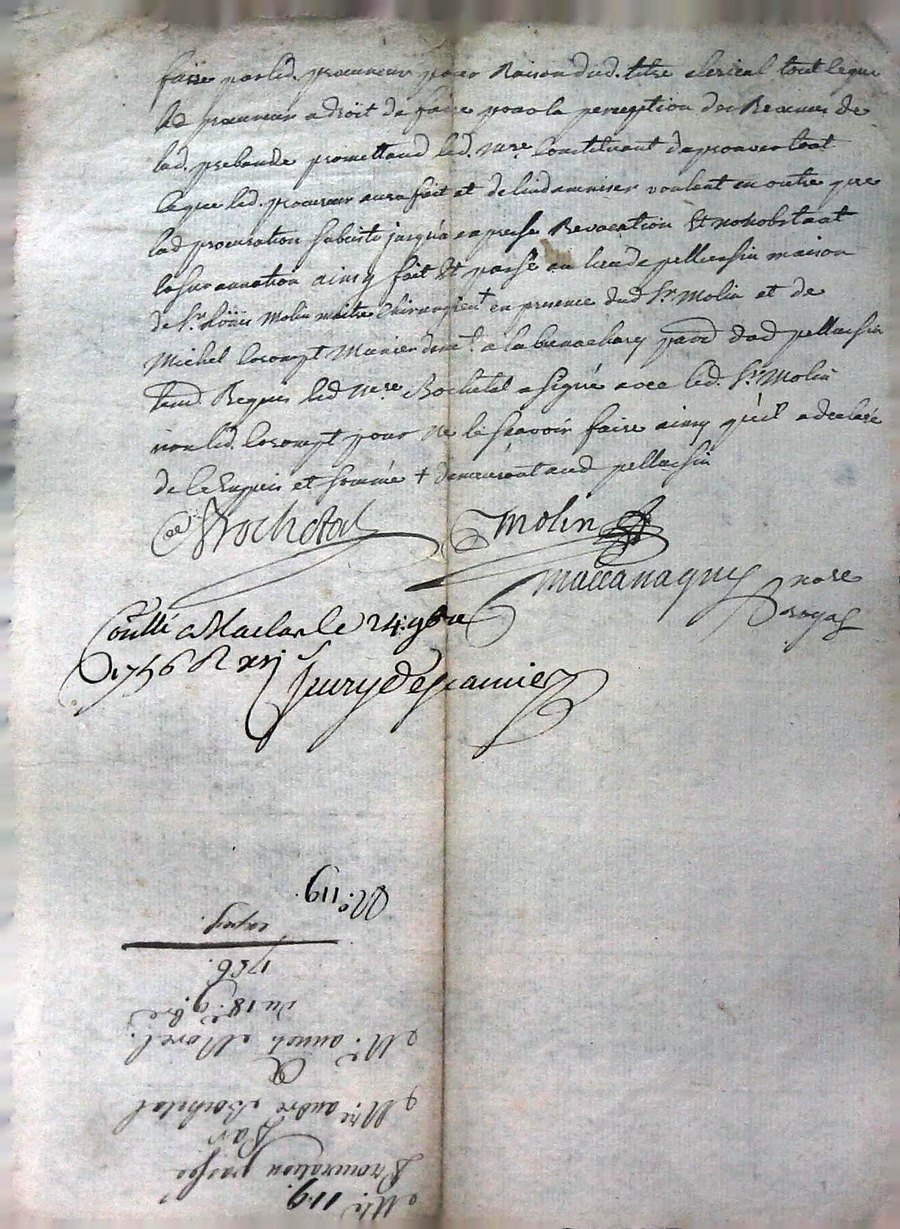 faire par led. procureur pour Raison dud. titre clerical tout ce que
led procureur a droit de faire pour la perception des Revenus de
lad. prebande promettand led. mre. Constituant daprouver tout
ce que led. procureur aura fait et de lindamniser voulant en outre que
lad procuration subciste jusqua expresse Revocation Et nonobstant
la surannation ainsy fait Et passé au lieu de pellussin maison
de Sr. Loüis Molin maitre Chirurgien + en presence dud Sr Molin et de
Michel Corompt Munier demt. a la paroi dud pellussin
Requis led Mre. Rochetal a signé avec led. Sr. Molin
non led. Corompt pour ne le scavoir faire ainsy qu'il a declaré
de ce Enquis et sommé + demeurant aud pellussin
Rochetal Molin
maccanaguy nore
royal
Conllé a Maclas le 24. 9bre
1756 R xij s
Nº. 119.
expég.
1756.
du 18e. 9bre
a Mr. annet Morel.
a
Mre andré Rochetal
Par
Procuration passée
Nº 119.